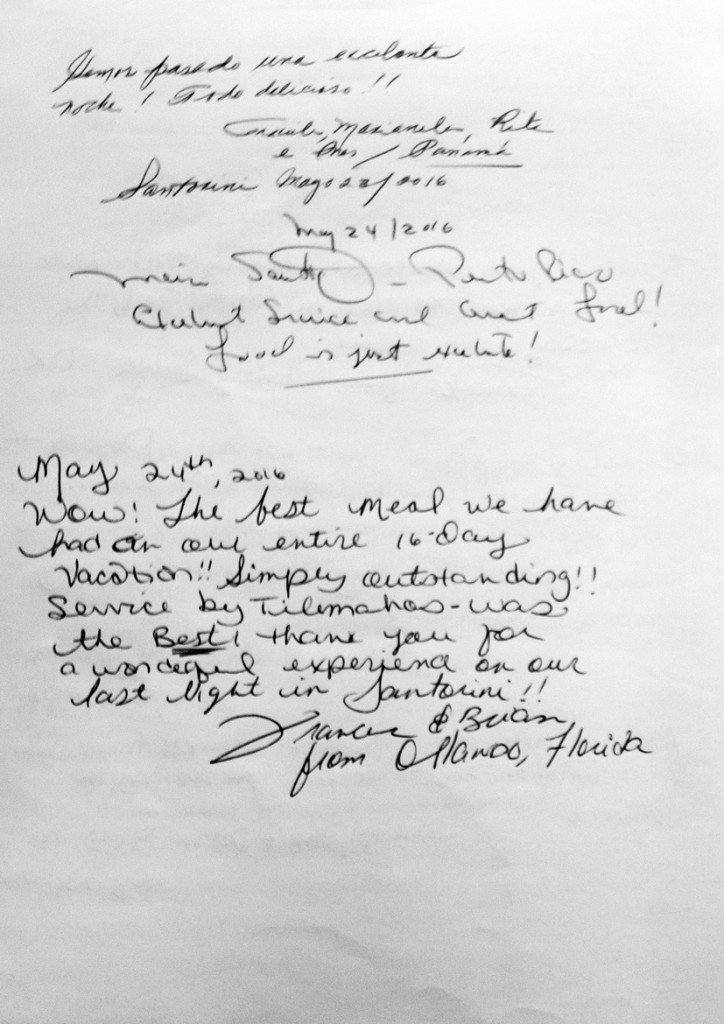 Hemos pasado una excelante
noche! Todo delicioso!!
Marianela, Rita
e Ines / Panamá
Santorini Mayo 23/2016
May 24/2016
Puerto Rico
Excelent Service and Great Food!
Food is just
May 24th, 2016
Wow! The best meal we have
had on our entire 16-Day
Vacation!! Simply outstanding!!
Service by Tilemahos-was
the Best! thank you for
a wonderful experience on our
last Night in Santorini!!
Frances & Brian
from Orlando, Florida